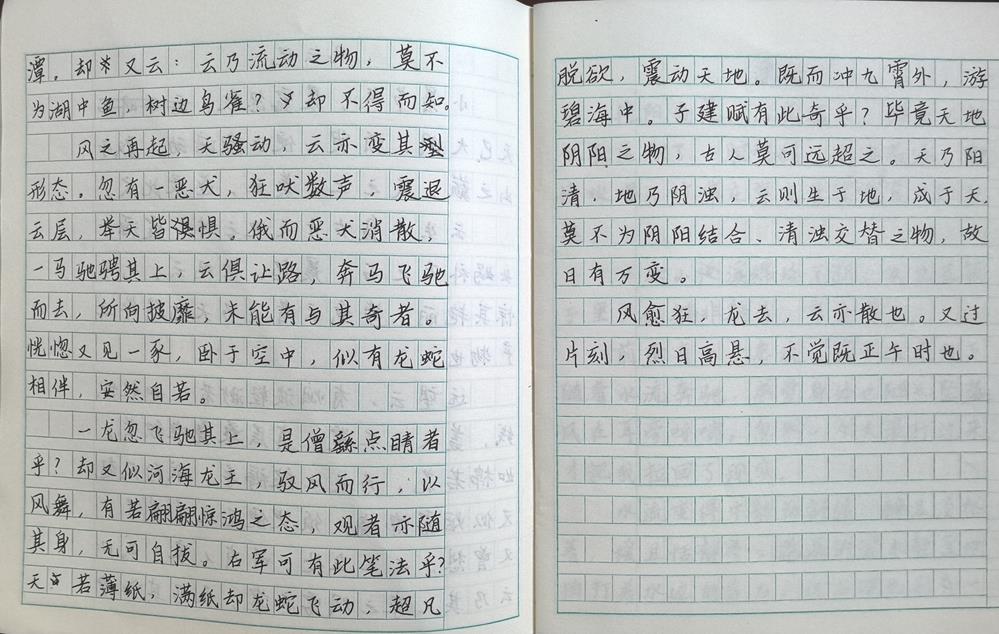 潭，却又云：云乃流动之物，莫不
为湖中鱼，树边鸟雀？却不得而知。
风之再起，天骚动，云亦变其型
形态。忽有一恶犬，狂吠数声，震退
云层，举天皆惧惧。俄而恶犬消散，
一马驰骋其上，云俱让路，奔马飞驰
而去，所向披靡，未能有与其奇者。
恍惚又见一豕，卧于空中，似有龙蛇
相伴，安然自若。
一龙忽飞驰其上，是僧繇点睛者
乎？却又似河海龙王，驭风而行，以
风舞，有若翩翩惊鸿之态，观者亦随
其身，无可自拔。右军可有此笔法乎？
天若薄纸，满纸却龙蛇飞动，超凡
脱欲，震动天地。既而冲九霄外，游
碧海中。子建赋有此奇乎？毕竟天地
阴阳之物，古人莫可远超之。天乃阳
清，地乃阴浊，云则生于地，成于天，
莫不为阴阳结合、清浊交替之物，故
日有万变。
风愈狂，龙去，云亦散也。又过
片刻，烈日高悬，不觉既正午时也。